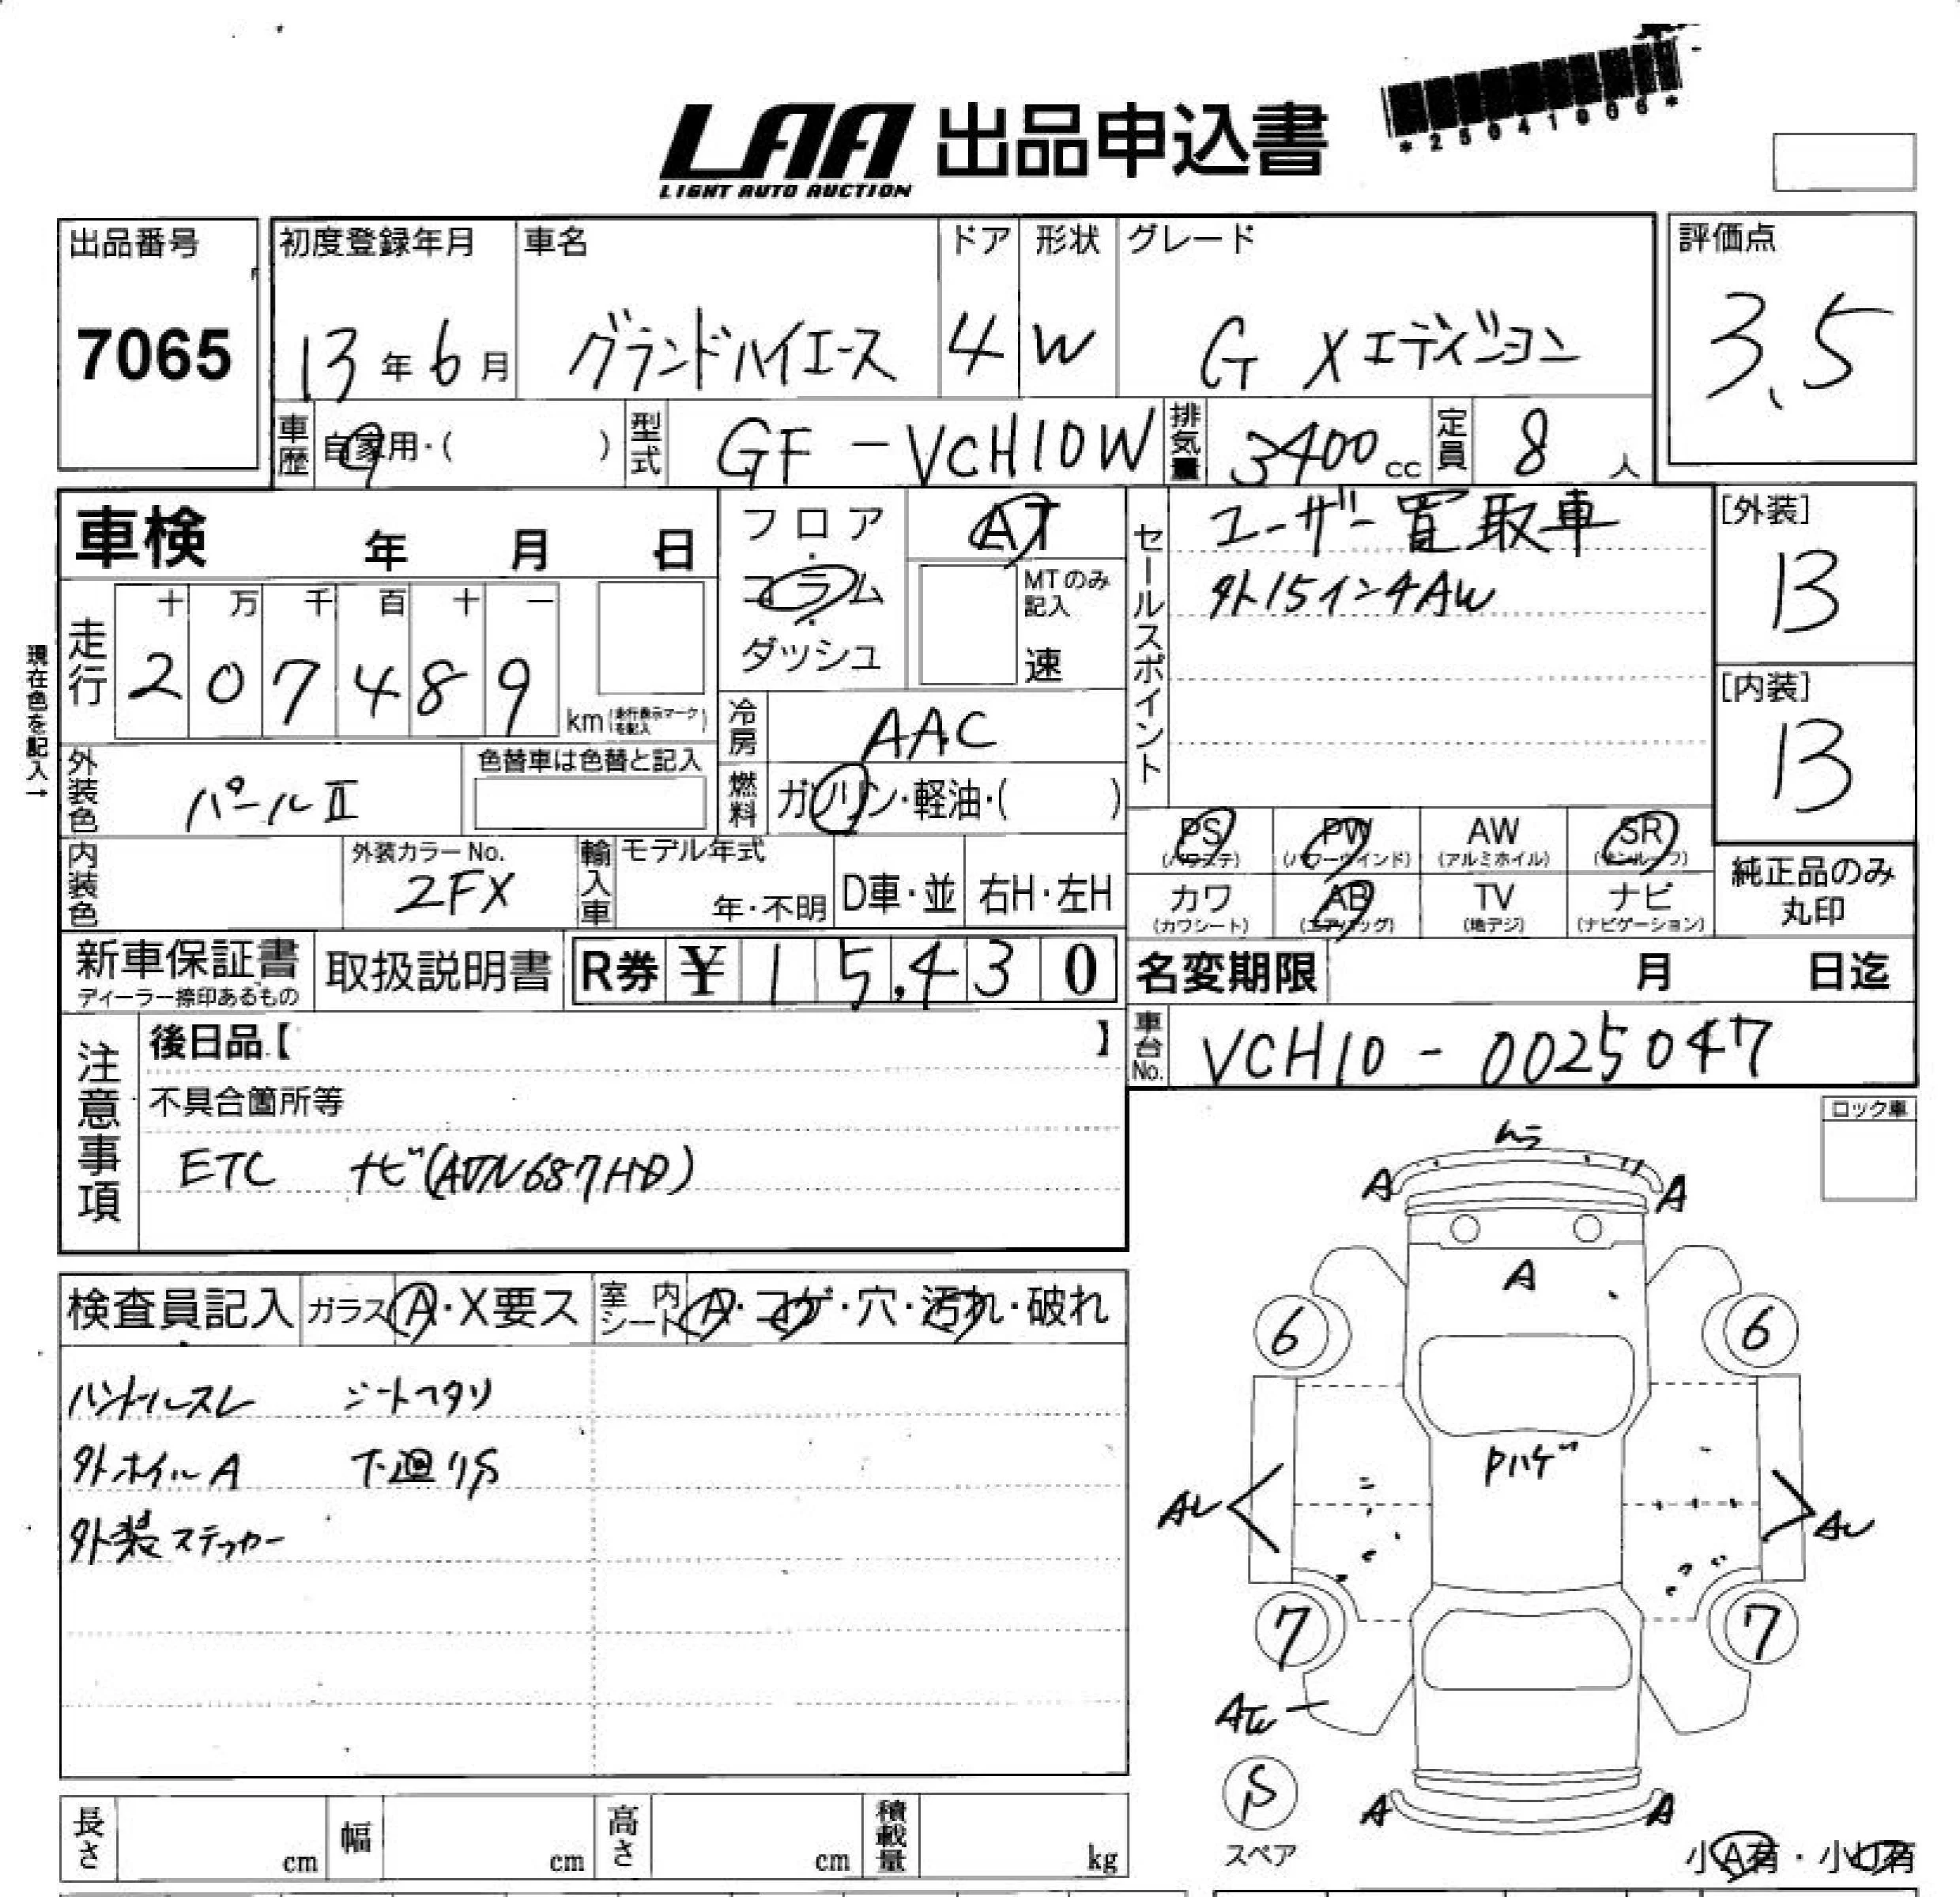 *25041006*
LAA 出品申込書
LIGHT AUTO AUCTION
出品番号
7065
初度登録年月
13年6月
車名
グランドハイエース
ドア
4
形状
W
グレード
G Xエディション
評価点
3.5
車歴
自家用・( )
型式
GF-VCH10W
排気量
3400cc
定員
8人
車検 年 月 日
フロア・コラム・ダッシュ
AT
MTのみ記入
速
セールスポイント
ユーザー買取車
外15インチAW
[外装]
13
[内装]
13
現在色を記入→
走行
十 万 千 百 十 一
2 0 7 4 8 9
km(走行表示マークを記入)
冷房
AAC
燃料
ガソリン・軽油・( )
外装色
パールII
色替車は色替と記入
内装色
外装カラーNo.
2FX
輸入車
モデル年式
年・不明
D車・並
右H・左H
PS
(パワステ)
PW
(パワーウインド)
AW
(アルミホイル)
SR
(サンルーフ)
カワ
(カワシート)
AB
(エアバッグ)
TV
(地デジ)
ナビ
(ナビゲーション)
純正品のみ
丸印
新車保証書
ディーラー捺印あるもの
取扱説明書
R券 ¥15,430
名変期限 月 日迄
車台No.
VCH10-0025047
注意事項
後日品【 】
不具合箇所等
ETC ナビ(AVN687HD)
ロック車
検査員記入
ガラス A・X要ス
室内シート A・コゲ・穴・汚れ・破れ
ハンドルスレ シートヘタリ
外ホイルA 下廻りS
外装ステッカー
ムラ
A A
A
6 6
Pハゲ
AU AU
7 7
S
スペア
A A
小A有・小U有
長さ cm
幅 cm
高さ cm
積載量 kg